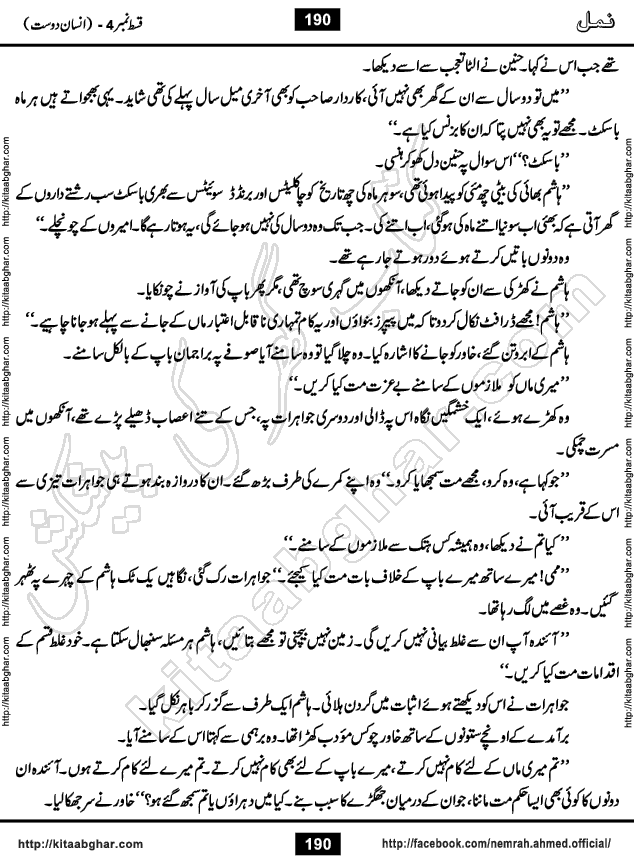 نمل
190
قسط نمبر 4 - (انسان دوست)
تھے جب اس نے کہا۔ حنین نے الٹا تعجب سے اسے دیکھا۔
’’میں تو دو سال سے ان کے گھر بھی نہیں آئی، کاردار صاحب کو بھی آخری میل سال پہلے کی تھی شاید۔ یہی بھجواتے ہیں ہر ماہ
باسکٹ۔ مجھے تو یہ بھی نہیں پتا کہ ان کا بزنس کیا ہے۔‘‘
’’باسکٹ؟‘‘ اس سوال پہ حنین دل کھو کر ہنسی۔
’’ہاشم بھائی کی بیٹی چھ مئی کو پیدا ہوئی تھی، سو ہر ماہ کی چھ تاریخ کو چاکلیٹس اور برانڈڈ سوئیٹس سے بھری باسکٹ سب رشتے داروں کے
گھر آتی ہے کہ بھئی اب سونیا اتنے ماہ کی ہوگئی، اب اتنے کی۔ جب تک وہ دو سال کی نہیں ہو جائے گی، یہ ہوتا رہے گا۔ امیروں کے چونچلے۔‘‘
وہ دونوں باتیں کرتے ہوئے دور ہوتے جا رہے تھے۔
ہاشم نے کھڑکی سے ان کو جاتے دیکھا، آنکھوں میں گہری سوچ تھی، مگر پھر باپ کی آواز نے چونکایا۔
’’ہاشم! مجھے ڈرافٹ نکال کر دو تاکہ میں پیپرز بنواؤں اور یہ کام تمہاری ناقابل اعتبار ماں کے جانے سے پہلے ہو جانا چاہیے۔‘‘
ہاشم کے ابرو تن گئے، خاور کو جانے کا اشارہ کیا۔ وہ چلا گیا تو وہ سامنے آیا صوفے پہ براجمان باپ کے بالکل سامنے۔
’’میری ماں کو ملازموں کے سامنے بے عزت مت کیا کریں۔‘‘
وہ کھڑے ہوئے، ایک خشمگیں نگاہ اس پہ ڈالی اور دوسری جواہرات پہ، جس کے تنے اعصاب ڈھیلے پڑے تھے، آنکھوں میں
مسرت چمکی۔
’’جو کہا ہے، وہ کرو، مجھے مت سمجھایا کرو۔‘‘ وہ اپنے کمرے کی طرف بڑھ گئے۔ ان کا دروازہ بند ہوتے ہی جواہرات تیزی سے
اس کے قریب آئی۔
’’کیا تم نے دیکھا، وہ ہمیشہ کس ہتک سے ملازموں کے سامنے۔‘‘
’’ممی! میرے ساتھ میرے باپ کے خلاف بات مت کیا کیجئے۔‘‘ جواہرات رک گئی، نگاہیں یک ٹک ہاشم کے چہرے پہ ٹھہر
گئیں۔ وہ غصے میں لگ رہا تھا۔
’’آئندہ آپ ان سے غلط بیانی نہیں کریں گی۔ زمین نہیں بیچنی تو مجھے بتائیں، ہاشم ہر مسئلہ سنبھال سکتا ہے۔ خود غلط قسم کے
اقدامات مت کیا کریں۔‘‘
جواہرات نے اس کو دیکھتے ہوئے اثبات میں گردن ہلائی۔ ہاشم ایک طرف سے گزر کر باہر نکل گیا۔
برآمدے کے اونچے ستونوں کے ساتھ خاور چوکس مؤدب کھڑا تھا۔ وہ برہمی سے کہتا اس کے سامنے آیا۔
’’تم میری ماں کے لئے کام نہیں کرتے، میرے باپ کے لئے بھی کام نہیں کرتے۔ تم میرے لئے کام کرتے ہوں۔ آئندہ ان
دونوں کا کوئی بھی ایسا حکم مت ماننا، جو ان کے درمیان جھگڑے کا سبب بنے۔ کیا میں دہراؤں یا تم سمجھ گئے ہو؟‘‘ خاور نے سر جھکا لیا۔
http://kitaabghar.com
190
http://facebook.com/nemrah.ahmed.official/
http://kitaabghar.com http://kitaabghar.com http://kitaabghar.com http://kitaabghar.com http://kitaabghar.com http://kitaabghar.com
http://kitaabghar.com http://kitaabghar.com http://kitaabghar.com http://kitaabghar.com http://kitaabghar.com http://kitaabghar.com
کتاب گھر کی پیشکش
kitaabghar.com